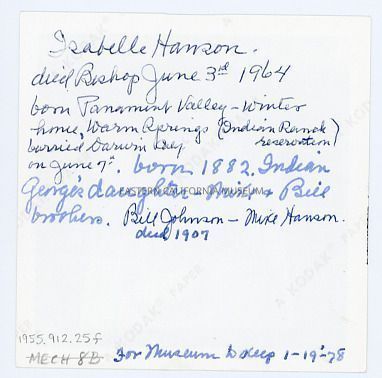 Isabelle Hanson.
died Bishop June 3rd 1964
born Panamint Valley - Winter
home, Warm Springs (Indian Ranch)
reservation
burried Darwin
on June 7th. born 1882. Indian
George's daughter - Mike & Bill
EASTERN CALIFORNIA MUSEUM
brothers. Bill Johnson - Mike Hanson.
died 1907
1955.912.25f
MECH 8B For Museum to keep 1-19-78
A KODAK PAPER